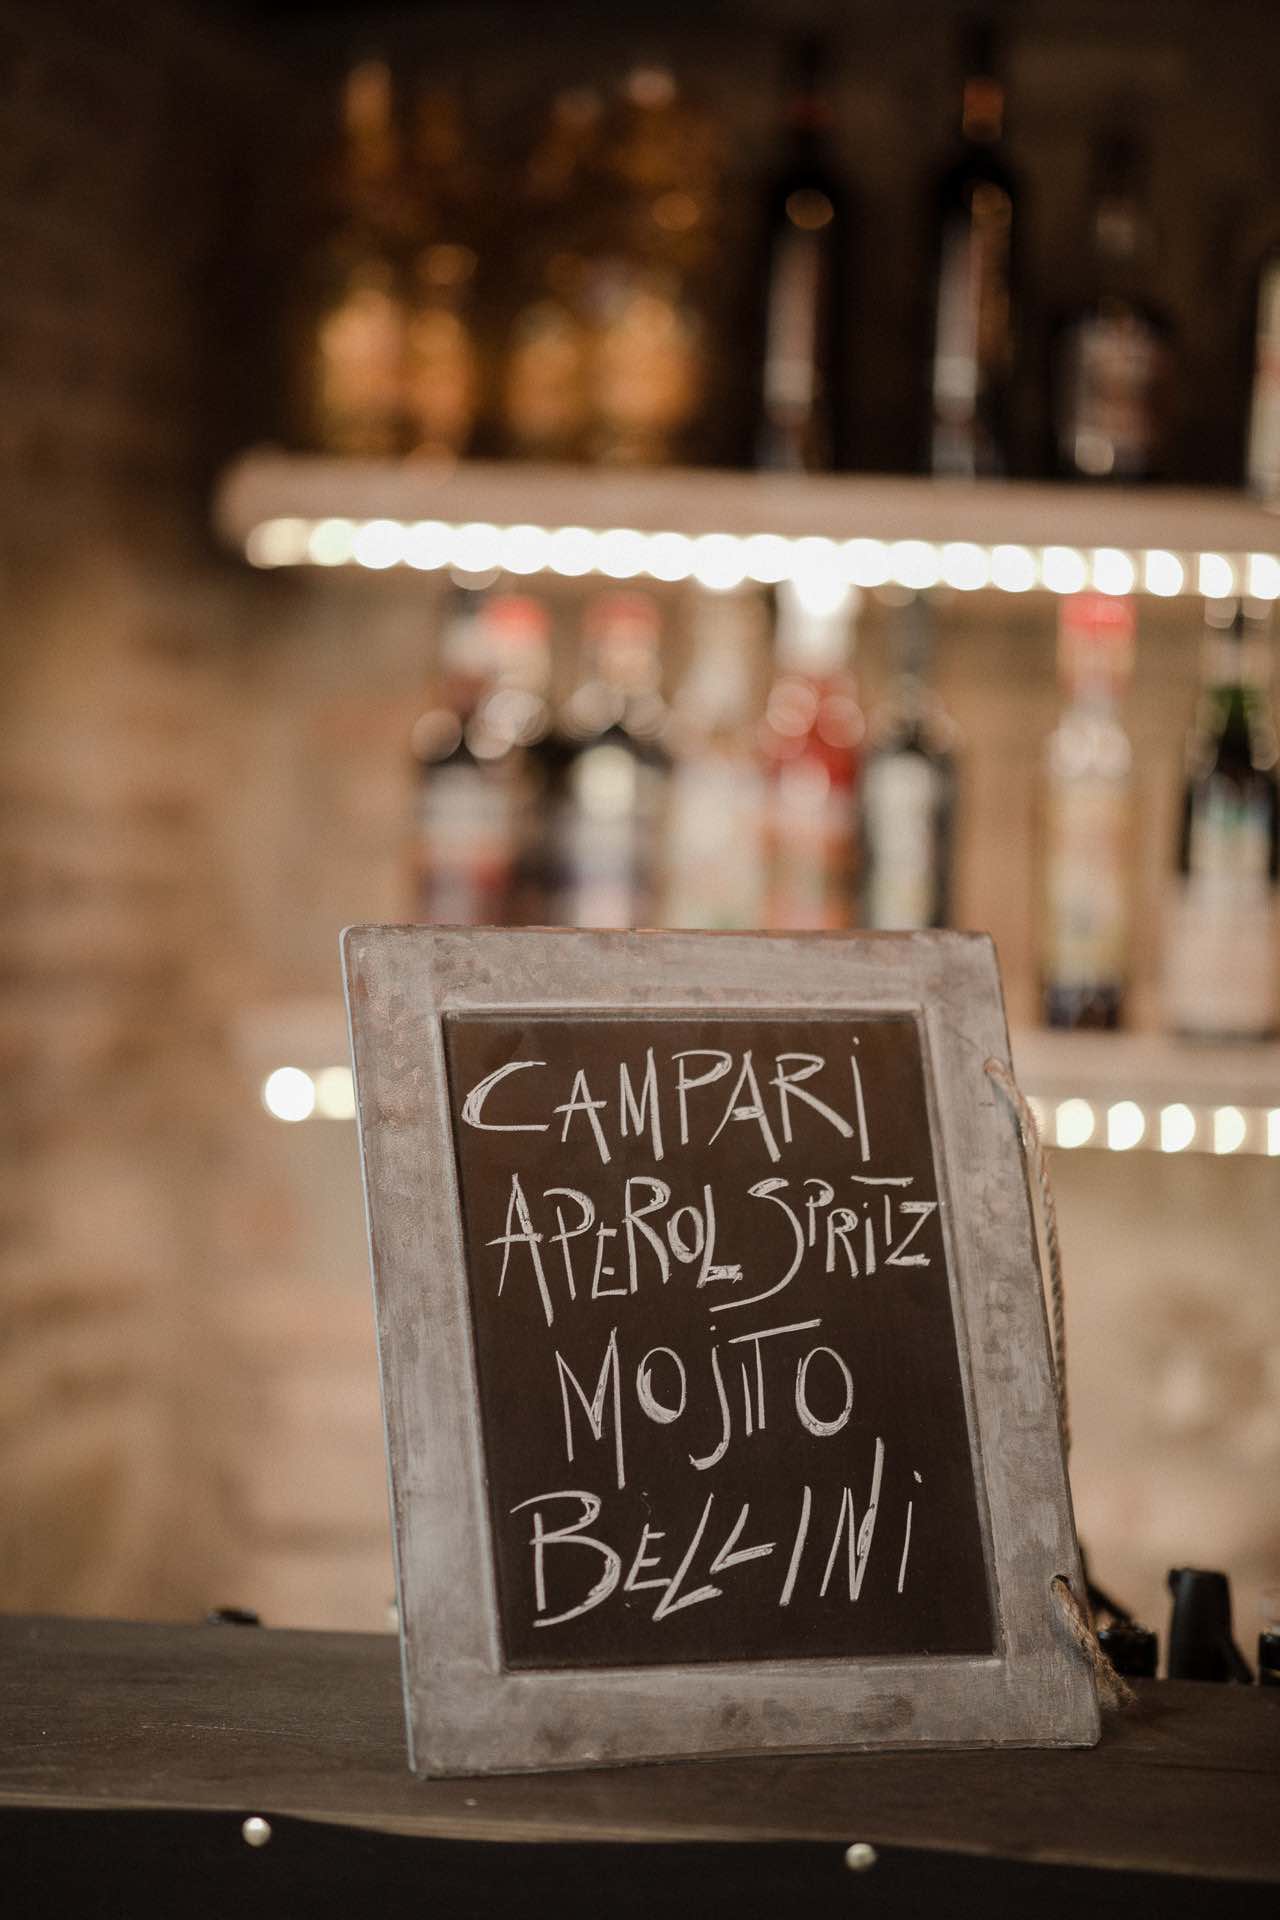 CAMPARi
APEROL SPRiTZ
MOjiTO
BELLINi